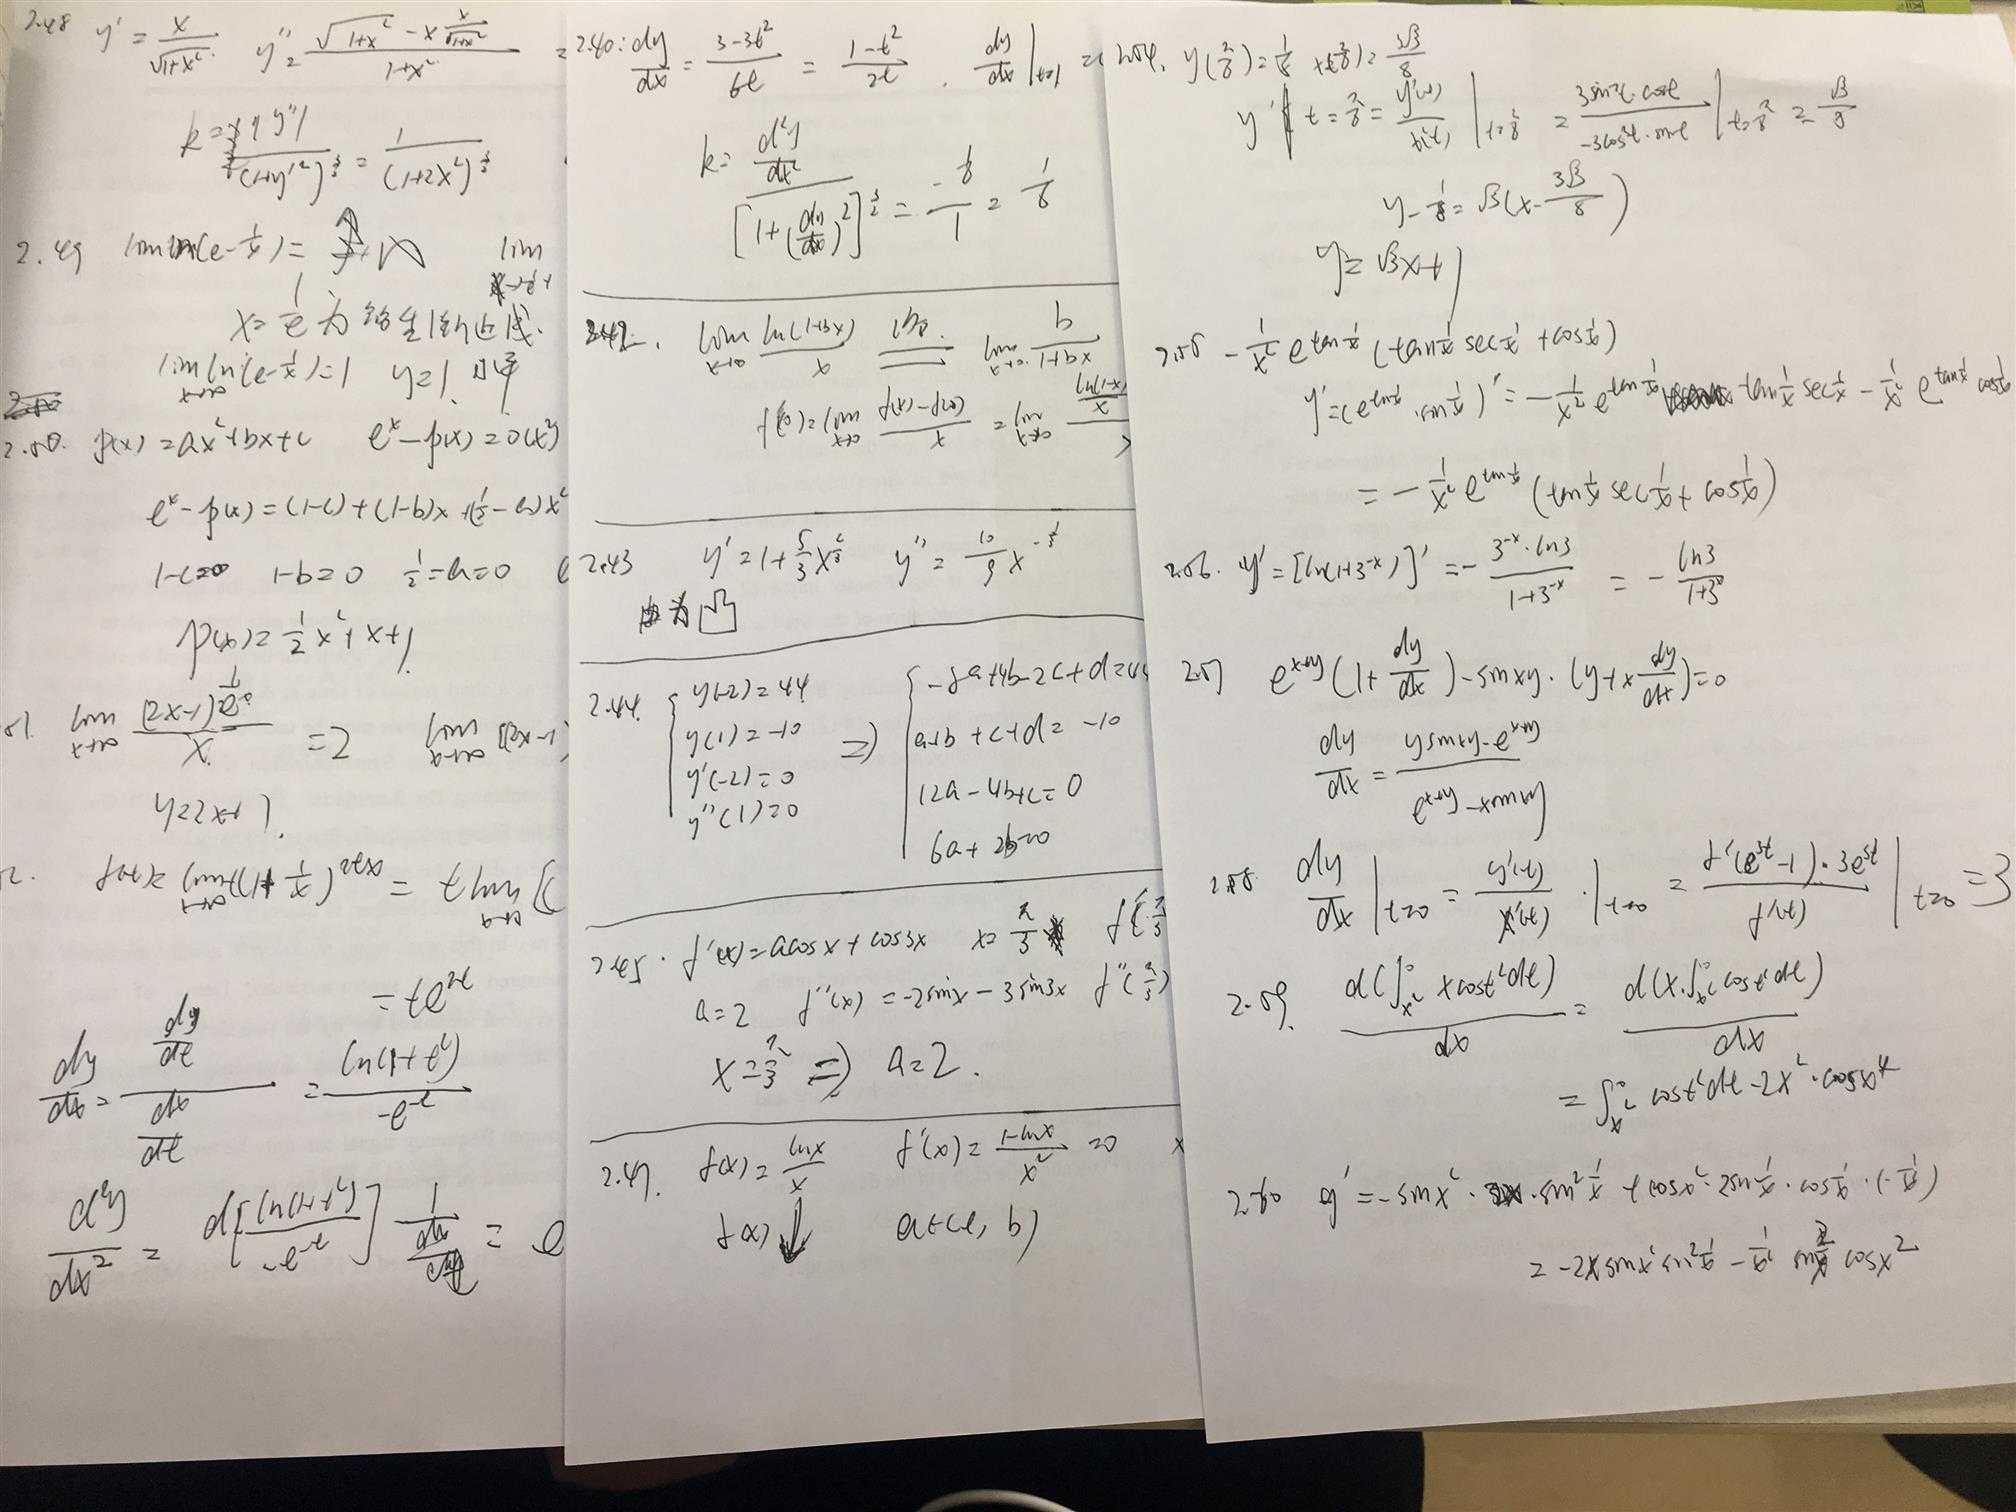 2.48 y' = x/√(1+x²) y'' = (√(1+x²) - x x/√(1+x²))/(1+x²) =
k = |y''|/(1+y'²)^(3/2) = 1/(1+2x²)^(3/2)
2.49 lim ln(e-1/x) = +∞ lim
x = 1/e 为铅直渐近线.
lim x→∞ ln(e-1/x) = 1 y=1.
2.50. p(x) = ax²+bx+c e^x - p(x) = o(x²)
e^x - p(x) = (1-c)+(1-b)x+(1/2-a)x²
1-c=0 1-b=0 1/2-a=0
p(x) = 1/2 x²+x+1
51. lim x→∞ (2x-1)e^(1/x)/x = 2 lim x→∞ [(2x-1)
y=2x+1.
f(t) = lim t(1+1/x)^(2tx) = t lim [(
= te^(2t)
dy/dx = (dy/dt)/(dx/dt) = ln(1+t²)/(-e^(-t))
d²y/dx² = d[ln(1+t²)/(-e^(-t))] 1/(dx/dt) = e
2.40: dy/dx = (3-3t²)/(6t) = (1-t²)/(2t) . dy/dx | t=1 =
k = (d²y/dx²)/[1+(dy/dx)²]^(3/2) = (-1/6)/1 = 1/6
2.42. lim x→0 ln(1+bx)/x = lim x→0 b/(1+bx)
f'(0) = lim x→0 (f(x)-f(0))/x = lim x→0 ln(1-x)/x
2.43 y' = 1+5/3 x^(2/3) y'' = 10/9 x^(-1/3)
为凹
2.44. { y(-2)=44 ⇒ { -8a+4b-2c+d=44
y(1)=-10 a+b+c+d=-10
y'(-2)=0 12a-4b+c=0
y''(1)=0 6a+2b=0
2.45. f'(x) = acosx+cos3x x=π/3 f'(π/3
a=2 f''(x) = -2sinx-3sin3x f''(π/3)
x=π/3 ⇒ a=2.
2.47. f(x) = lnx/x f'(x) = (1-lnx)/x² = 0 x
f(x)↓ a∈(e, b)
2.54. y(π/6) = 1/8 x(π/6) = 3√3/8
y' | t=π/6 = y'(t)/x'(t) | t=π/6 = 3sin²t·cost/(-3cos²t·sint) | t=π/6 = √3/3
y-1/8 = √3(x-3√3/8)
y = √3x+1
2.55 -1/x² e^(tan 1/x) (tan 1/x sec 1/x + cos 1/x)
y' = (e^(tan 1/x)·sin 1/x)' = -1/x² e^(tan 1/x) tan 1/x sec 1/x - 1/x² e^(tan 1/x) cos 1/x
= -1/x² e^(tan 1/x) (tan 1/x sec 1/x + cos 1/x)
2.56. y' = [ln(1+3^(-x))]' = -(3^(-x)·ln3)/(1+3^(-x)) = -ln3/(1+3^x)
2.57 e^(x+y)(1+dy/dx)-sinxy·(y+x dy/dx)=0
dy/dx = (ysinxy-e^(x+y))/(e^(x+y)-xsinxy)
2.58. dy/dx | t=0 = y'(t)/x'(t) | t=0 = f'(e^(3t)-1)·3e^(3t)/f'(t) | t=0 = 3
2.59. d(∫_(x²)^0 xcost²dt)/dx = d(x·∫_(x²)^0 cost²dt)/dx
= ∫_(x²)^0 cost²dt-2x²·cosx⁴
2.60 y' = -sinx²·2x·sin² 1/x + cosx²·2sin 1/x·cos 1/x·(-1/x²)
= -2xsinx²sin² 1/x - 1/x² sin 2/x cosx²